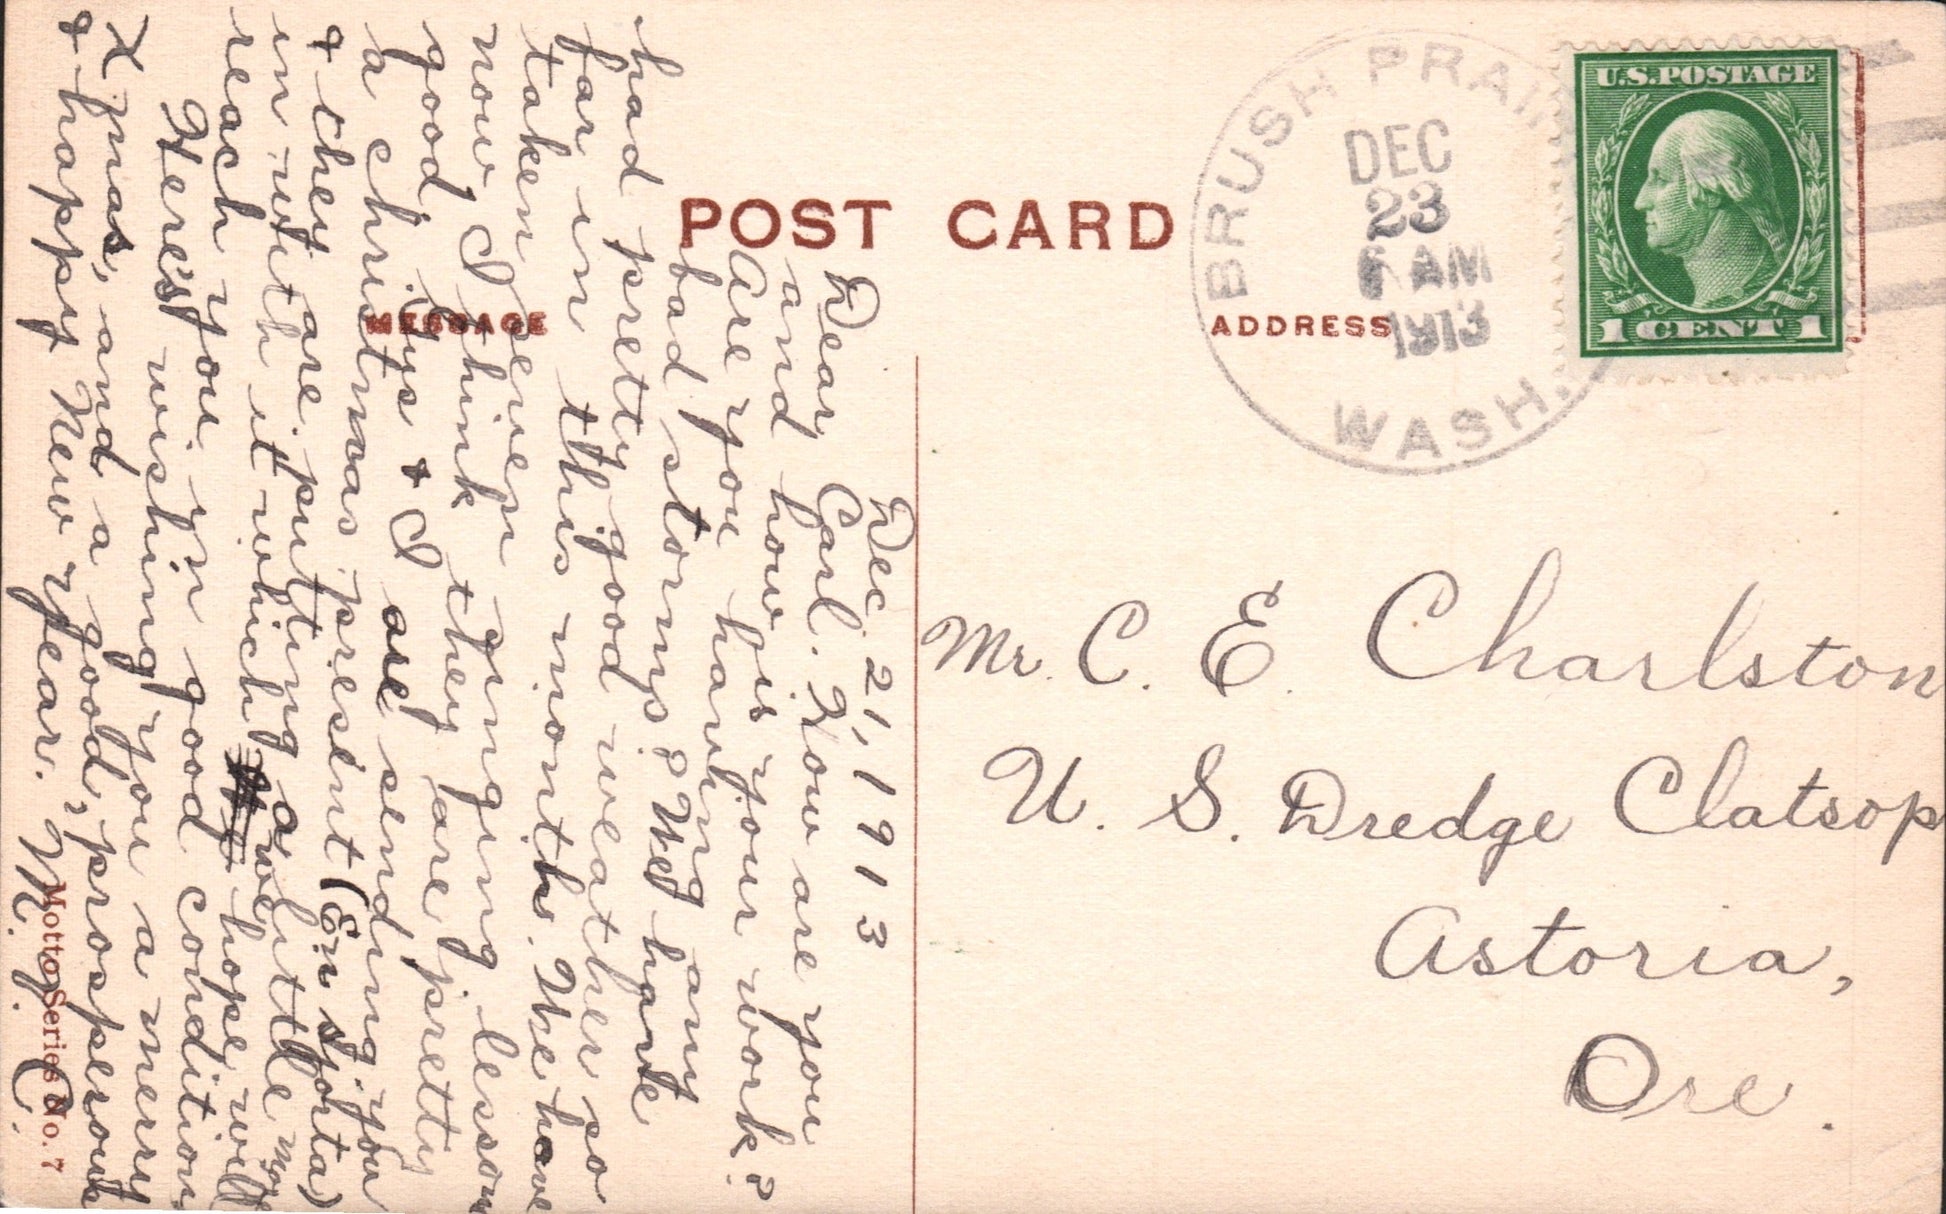 POST CARD
MESSAGE
ADDRESS
BRUSH PRAI
DEC
23
6 AM
1913
WASH.
U.S. POSTAGE
1 CENT 1
Dec 21, 1913
Dear Carl. How are you
and how is your work?
Are you having any
bad storms? We have
had pretty good weather so
far in this month. We have
taken seven singing lesson
now I think they are pretty
good. Gys & I are sending you
a christmas present (En skjorta)
& they are putting a little more
in with it which we hope will
reach you in good condition.
Here's wishing you a merry
Xmas, and a good, prosperous
& happy New year. M. C.
Mr. C. E. Charlston
U. S. Dredge Clatsop
Astoria,
Ore.
Motto Series No. 7